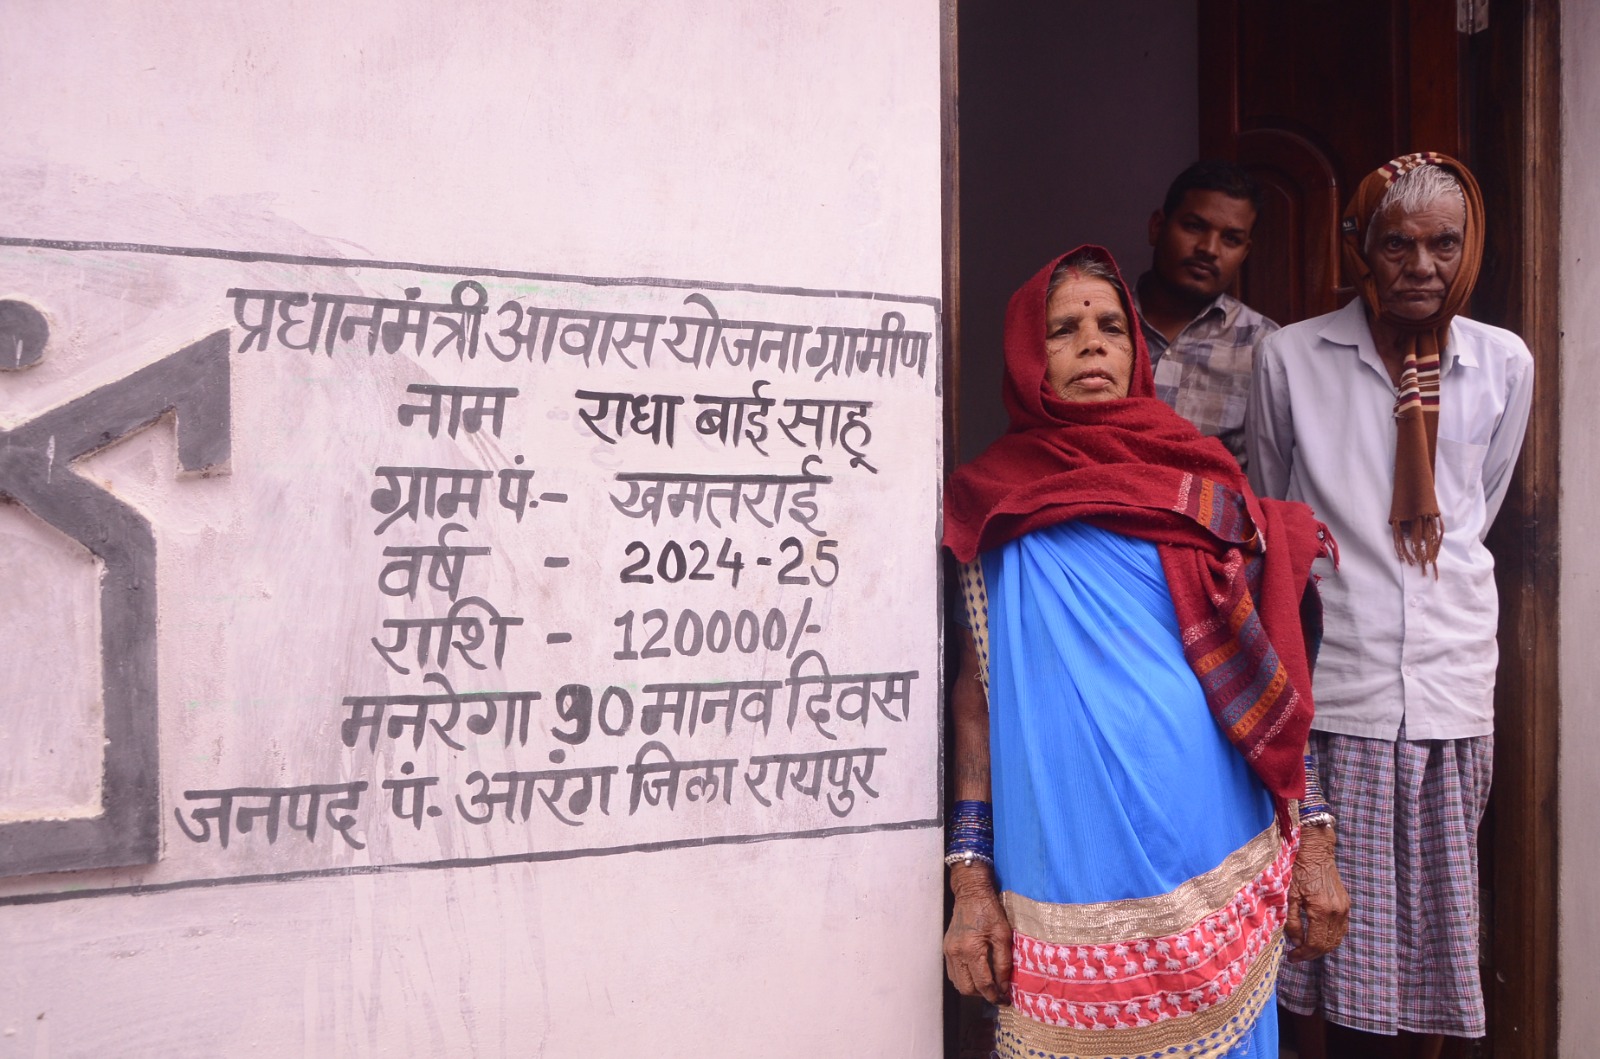 प्रधानमंत्री आवास योजना ग्रामीण
नाम - राधा बाई साहू
ग्राम पं.- खमतराई
वर्ष - 2024-25
राशि - 120000/-
मनरेगा 90 मानव दिवस
जनपद पं. आरंग जिला रायपुर